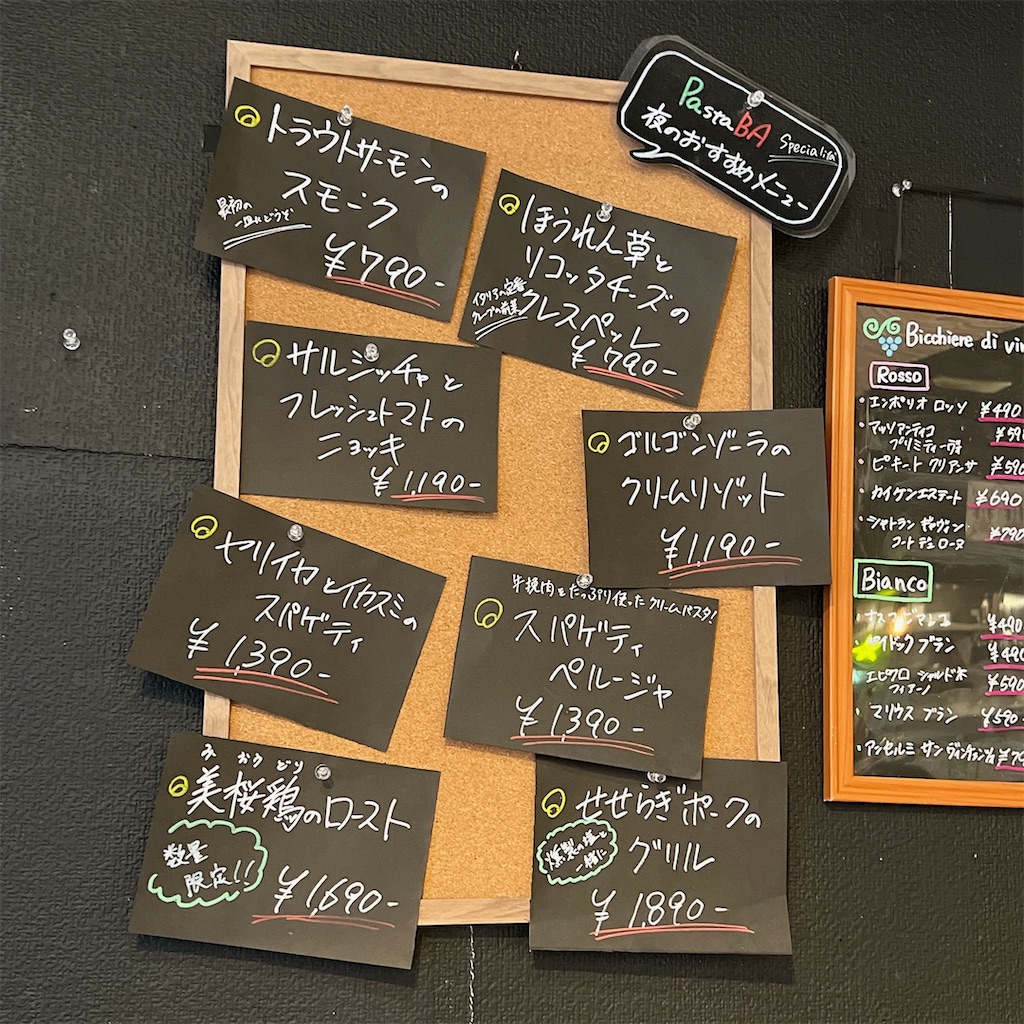 PastaBA Specialità
夜のおすすめメニュー
トラウトサーモンの
スモーク
最初の
一皿にどうぞ
¥790-
ほうれん草と
リコッタチーズの
クレスペッレ
イタリアの定番
クレープの前菜
¥790-
サルシッチャと
フレッシュトマトの
ニョッキ
¥1,190-
ゴルゴンゾーラの
クリームリゾット
¥1,190-
ヤリイカとイカスミの
スパゲティ
¥1,390-
牛挽肉をたっぷり使ったクリームパスタ!
スパゲティ
ペルージャ
¥1,390-
み おう どり
美桜鶏のロースト
数量
限定!!
¥1,690-
せせらぎポークの
グリル
燻製の塩と
一緒に
¥1,890-
Bicchiere di vin
Rosso
・エンポリオ ロッソ ¥490
・マッソアンティコ
プリミティーヴォ ¥590
・ピキート クリアンサ ¥590
・カイケンエステート ¥690
・シャトラン
コート デュ ローヌ ¥790
Bianco
¥490
ブラン ¥490
エピクロ シャルドネ
フィアーノ ¥590
・マリウス ブラン ¥590
・アンセルミ サン ヴィンチェンツォ ¥79